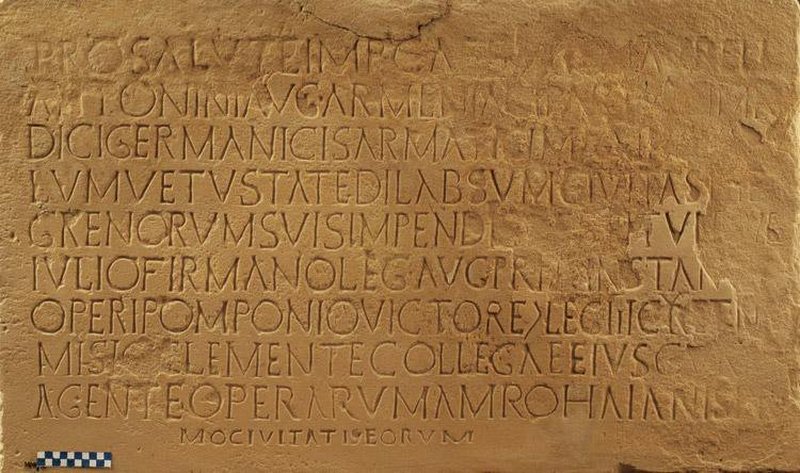 PROSALUTEIMPCAE
ANTONINIAUGARMENIACI
DICIGERMANICISARMATICI
LVMVETVSTATEDILABSVMCIVITAS
GRENORVMSVISIMPEND
IVLIOFIRMANOLEGAVGPR INSTAN
OPERIPOMPONIOVICTORE>LEGIIICYR
MISIO CLEMENTECOLLEGAEEIVSC
AGENTEOPERARVMAMROHAIANIS
MOCIVITATISEORVM